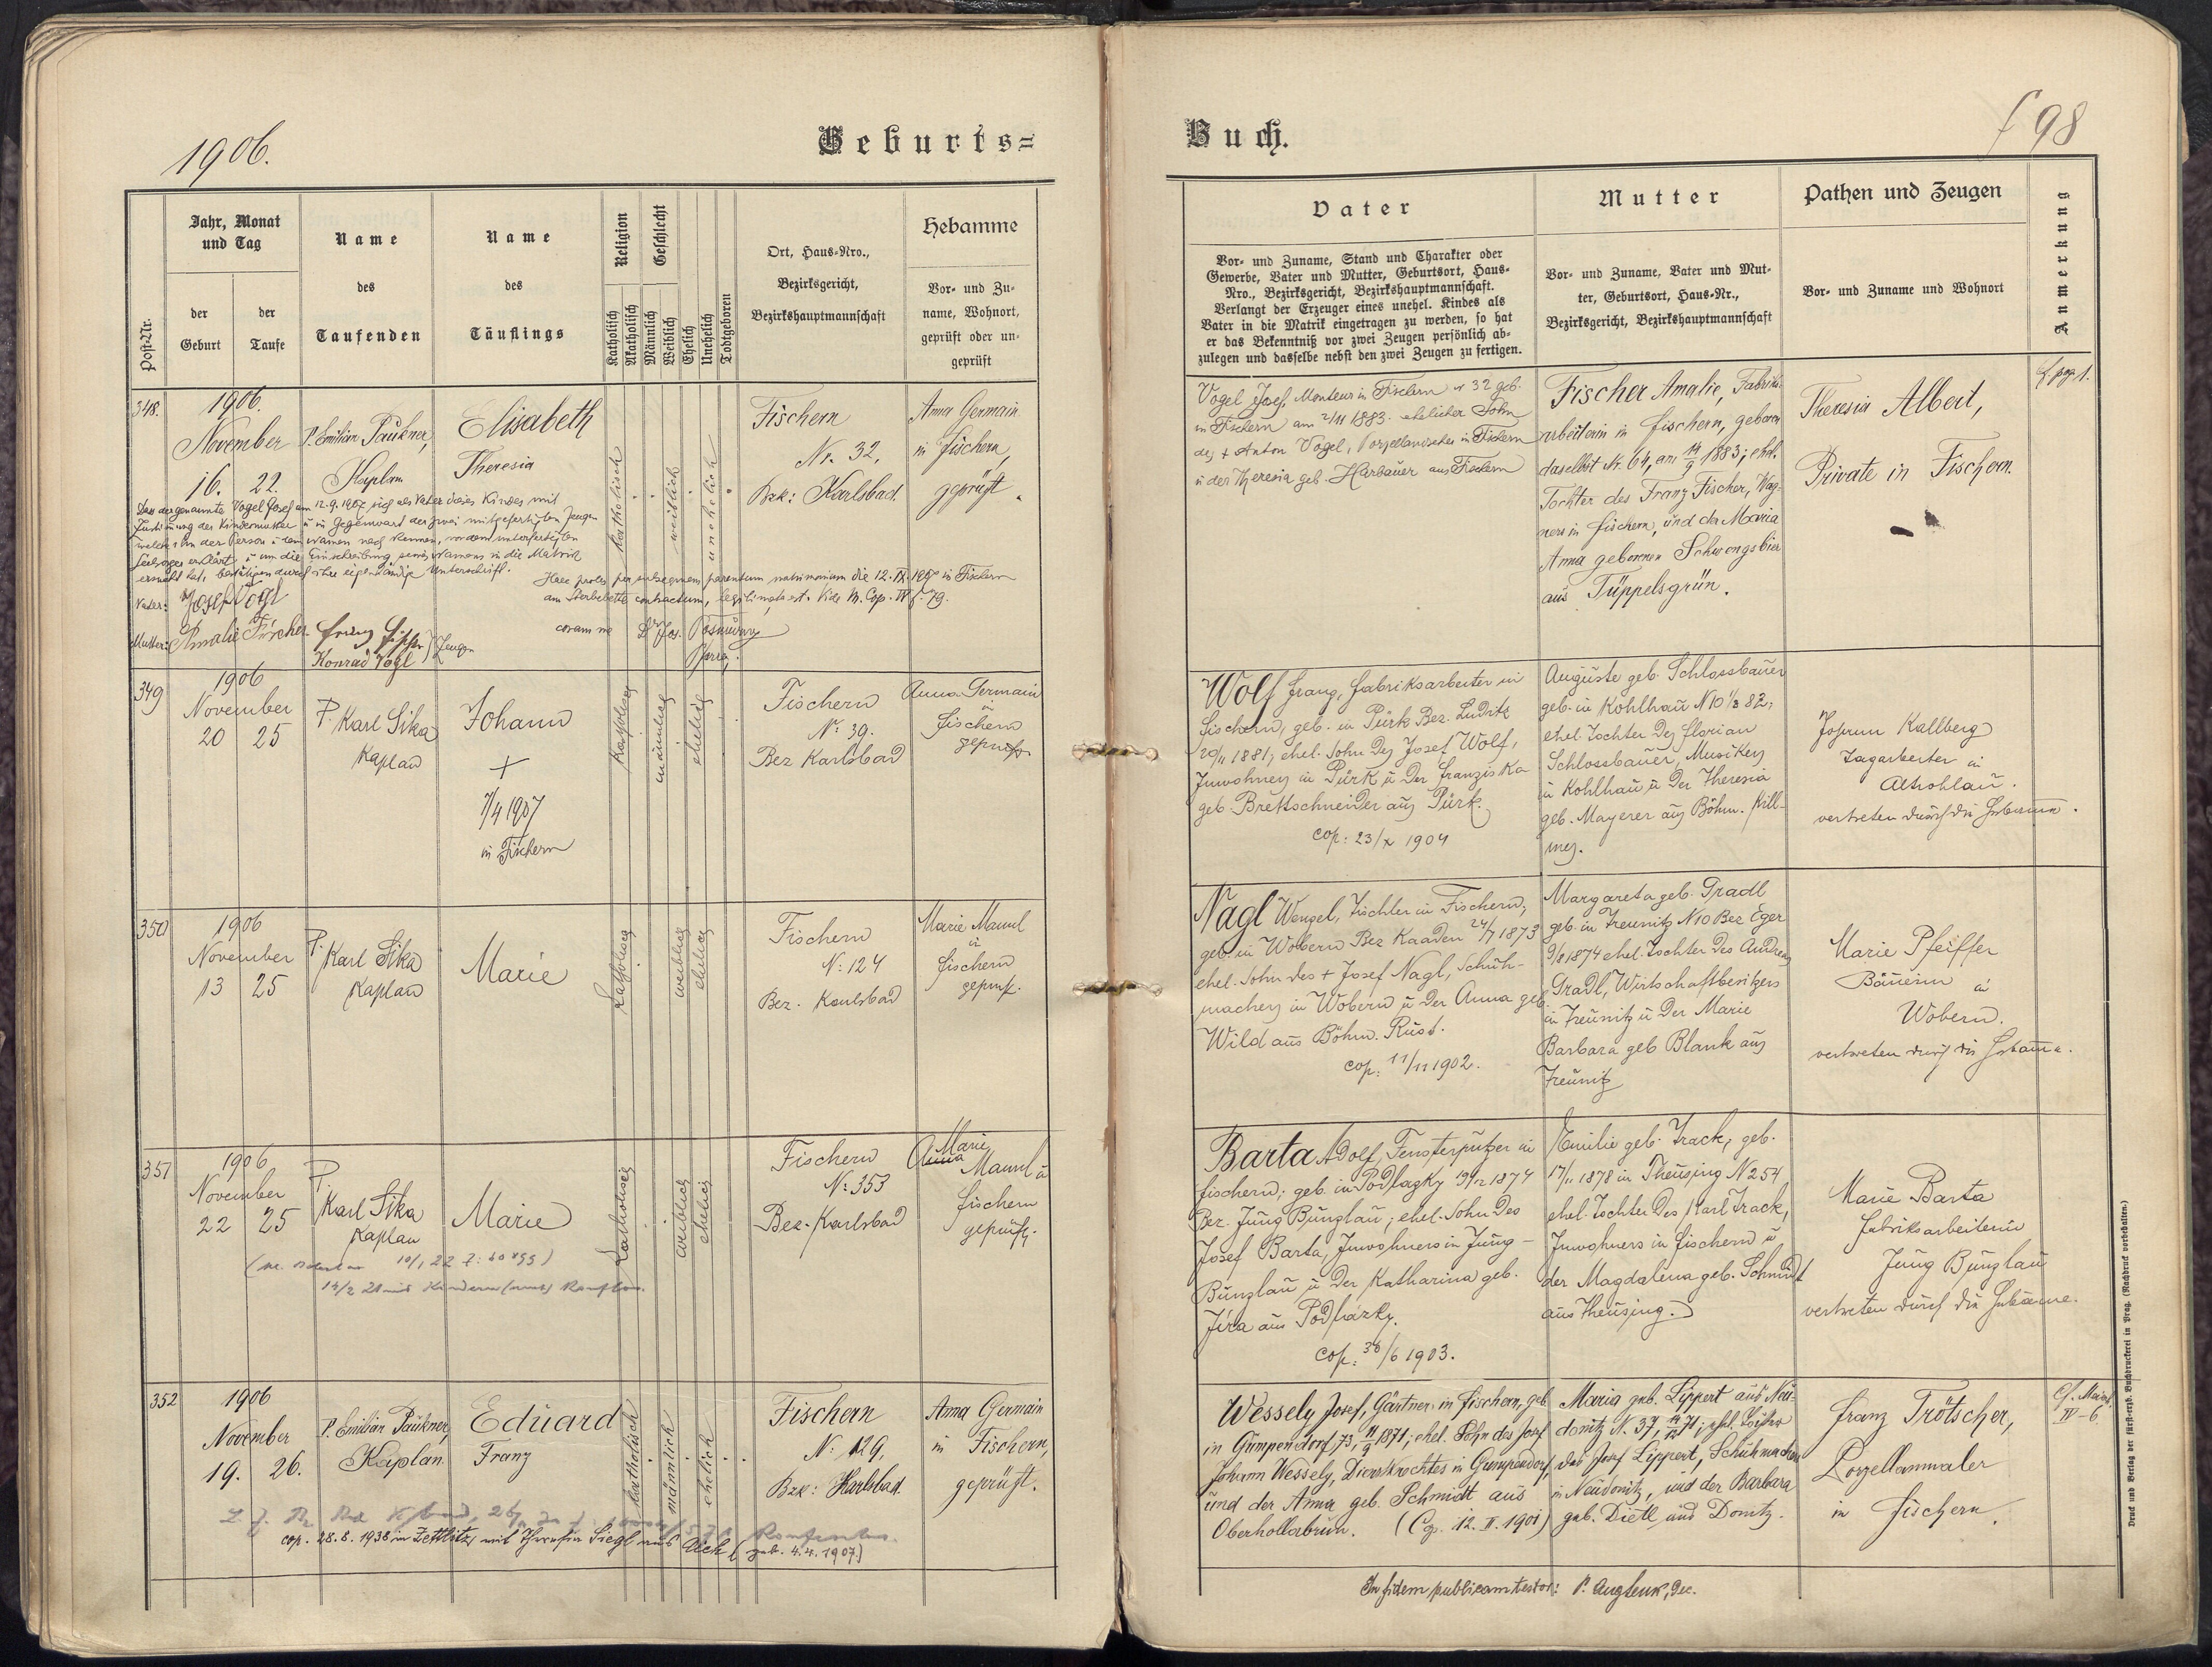 1906.
Geburts=
Post-Nr.
Jahr, Monat
und Tag
der
Geburt
der
Taufe
Name
des
Taufenden
Name
des
Täuflings
Religion
Katholisch
Akatholisch
Geschlecht
Männlich
Weiblich
Ehelich
Unehelich
Todtgeboren
Ort, Haus-Nro.,
Bezirksgericht,
Bezirkshauptmannschaft
Hebamme
Vor- und Zu-
name, Wohnort,
geprüft oder un-
geprüft
348.
1906.
November
16. 22.
P. Emilian Paukner,
Kaplan
Elisabeth
Theresia
katholisch
weiblich
unehelich
Fischern
Nr. 32,
Bzk: Karlsbad.
Anna Germain
in Fischern,
geprüft.
Dass der genannte Vogel Josef am 12.9.1907 sich als Vater dieses Kindes mit
Zustimmung der Kindesmutter u in Gegenwart der zwei mitgefertigten Zeugen
welche ihn der Person u dem Namen nach kennen, vor dem unterfertigten
Seelsorger erklärt u um die Einschreibung seines Namens in die Matrik
ersucht hat, bestätigen durch ihre eigenhändige Unterschrift.
Vater: Josef Vogl
Mutter: Amalie Fischer
Franz Fischer
Konrad Vogl } Zeugen
Haec proles per subsequens parentum matrimonium die 12. IX. 1907 in Fischern
am Sterbebette contractum, legitimata est. Vide M. Cop. IV f. 79.
coram me Dr Jos.
Pfarrer.
349
1906
November
20 25
P. Karl Sika
Kaplan
Johann
+
7/4 1907
in Fischern
katholisch
männlich
ehelich
Fischern
N: 39.
Bez Karlsbad
Anna Germain
in
Fischern
geprüft
350
1906
November
13 25
P. Karl Sika
Kaplan
Marie
katholisch
weiblich
ehelich
Fischern
N: 124
Bez. Karlsbad
Marie Mannl
in
Fischern
geprüft.
351
1906
November
22 25
P.
Karl Sika
Kaplan
Marie
Katholisch
weiblich
ehelich
Fischern
N: 353
Bez. Karlsbad
Marie
Anna Mannl in
Fischern
geprüft.
352
1906
November
19. 26.
P. Emilian Paukner,
Kaplan
Eduard
Franz
katholisch
männlich
ehelich
Fischern
N: 129,
Bzk: Karlsbad.
Anna Germain
in Fischern,
geprüft.
cop. 28.8.1938 in Zettlitz, mit Theresia Siegl aus Aich (geb. 4.4.1907.)
Buch.
f 98
Vater
Vor- und Zuname, Stand und Charakter oder
Gewerbe, Vater und Mutter, Geburtsort, Haus-
Nro., Bezirksgericht, Bezirkshauptmannschaft.
Verlangt der Erzeuger eines unehel. Kindes als
Vater in die Matrik eingetragen zu werden, so hat
er das Bekenntniß vor zwei Zeugen persönlich ab-
zulegen und dasselbe nebst den zwei Zeugen zu fertigen.
Mutter
Vor- und Zuname, Vater und Mut-
ter, Geburtsort, Haus-Nr.,
Bezirksgericht, Bezirkshauptmannschaft
Pathen und Zeugen
Vor- und Zuname und Wohnort
Anmerkung
Vogel Josef, Monteur in Fischern N 32 geb.
in Fischern am 2/11 1883. ehelicher Sohn
des + Anton Vogel, Porzellandreher in Fischern
u der Theresia geb. Harbauer aus Fischern
Fischer Amalie, Fabriks-
arbeiterin in Fischern, geboren
daselbst Nr. 64, am 14/9 1883; ehel.
Tochter des Franz Fischer, Wag-
ners in Fischern, und der Maria
Anna geborenen Schwengsbier
aus Tüppelsgrün.
Theresia Albert,
Private in Fischern.
f. pag 1.
Wolf Franz, Fabriksarbeiter in
Fischern, geb. in Pürk Bez. Luditz
29/11 1881; ehel. Sohn des Josef Wolf,
Inwohners in Pürk u der Franziska
geb. Brettschneider aus Pürk.
cop: 23/X 1904
Auguste geb. Schlossbauer
geb. in Kohlhau N 10 1/3 82;
ehel. Tochter des Florian
Schlossbauer, Musikers
in Kohlhau u der Theresia
geb. Mayerer aus Böhm. Kill-
mes.
Johann Kallberg
Tagarbeiter in
Altrohlau.
vertreten durch die Hebamme.
Nagl Wenzel, Tischler in Fischern,
geb. in Wobern Bez Kaaden 24/7 1873
ehel. Sohn des + Josef Nagl, Schuh-
machers in Wobern u der Anna geb.
Wild aus Böhm. Rust.
cop: 11/11 1902.
Margareta geb. Gradl
geb. in Treunitz N 10 Bez Eger
9/8 1874 ehel. Tochter des Andreas
Gradl, Wirtschaftsbesitzers
in Treunitz u der Marie
Barbara geb Blank aus
Treunitz
Marie Pfeiffer
Bäuerin in
Wobern.
vertreten durch die Hebamme.
Barta Adolf, Fensterputzer in
Fischern; geb. in Podlazky 19/12 1874
Bez. Jung Bunzlau; ehel. Sohn des
Josef Barta, Inwohners in Jung-
Bunzlau u der Katharina geb.
Jira aus Podlazky.
cop: 30/6 1903.
Emilie geb. Track, geb.
17/11 1878 in Theusing N 254
ehel. Tochter des Karl Track,
Inwohners in Fischern u
der Magdalena geb. Schmidt
aus Theusing.
Marie Barta
Fabriksarbeiterin
Jung Bunzlau
vertreten durch die Hebamme.
Wessely Josef, Gärtner in Fischern, geb.
in Gumpendorf 73, 11/9 1871; ehel. Sohn des Josef
Johann Wessely, Dienstknechtes in Gumpendorf,
und der Anna geb. Schmidt aus
Oberhollabrun. (Cop. 12. II. 1901)
Maria geb. Lippert aus Neu-
donitz N. 37, 14/12 71; ehel. Tochter
des Josef Lippert, Schuhmachers
in Neudonitz, und der Barbara
geb. Dietl aus Donitz.
Franz Trötscher,
Porzellanmaler
in Fischern.
IV-6.
In fidem publicam testor: P. Aug. Lenk, Dec.
Druck und Verlag der fürst-erzb. Buchdruckerei in Prag. (Nachdruck vorbehalten.)